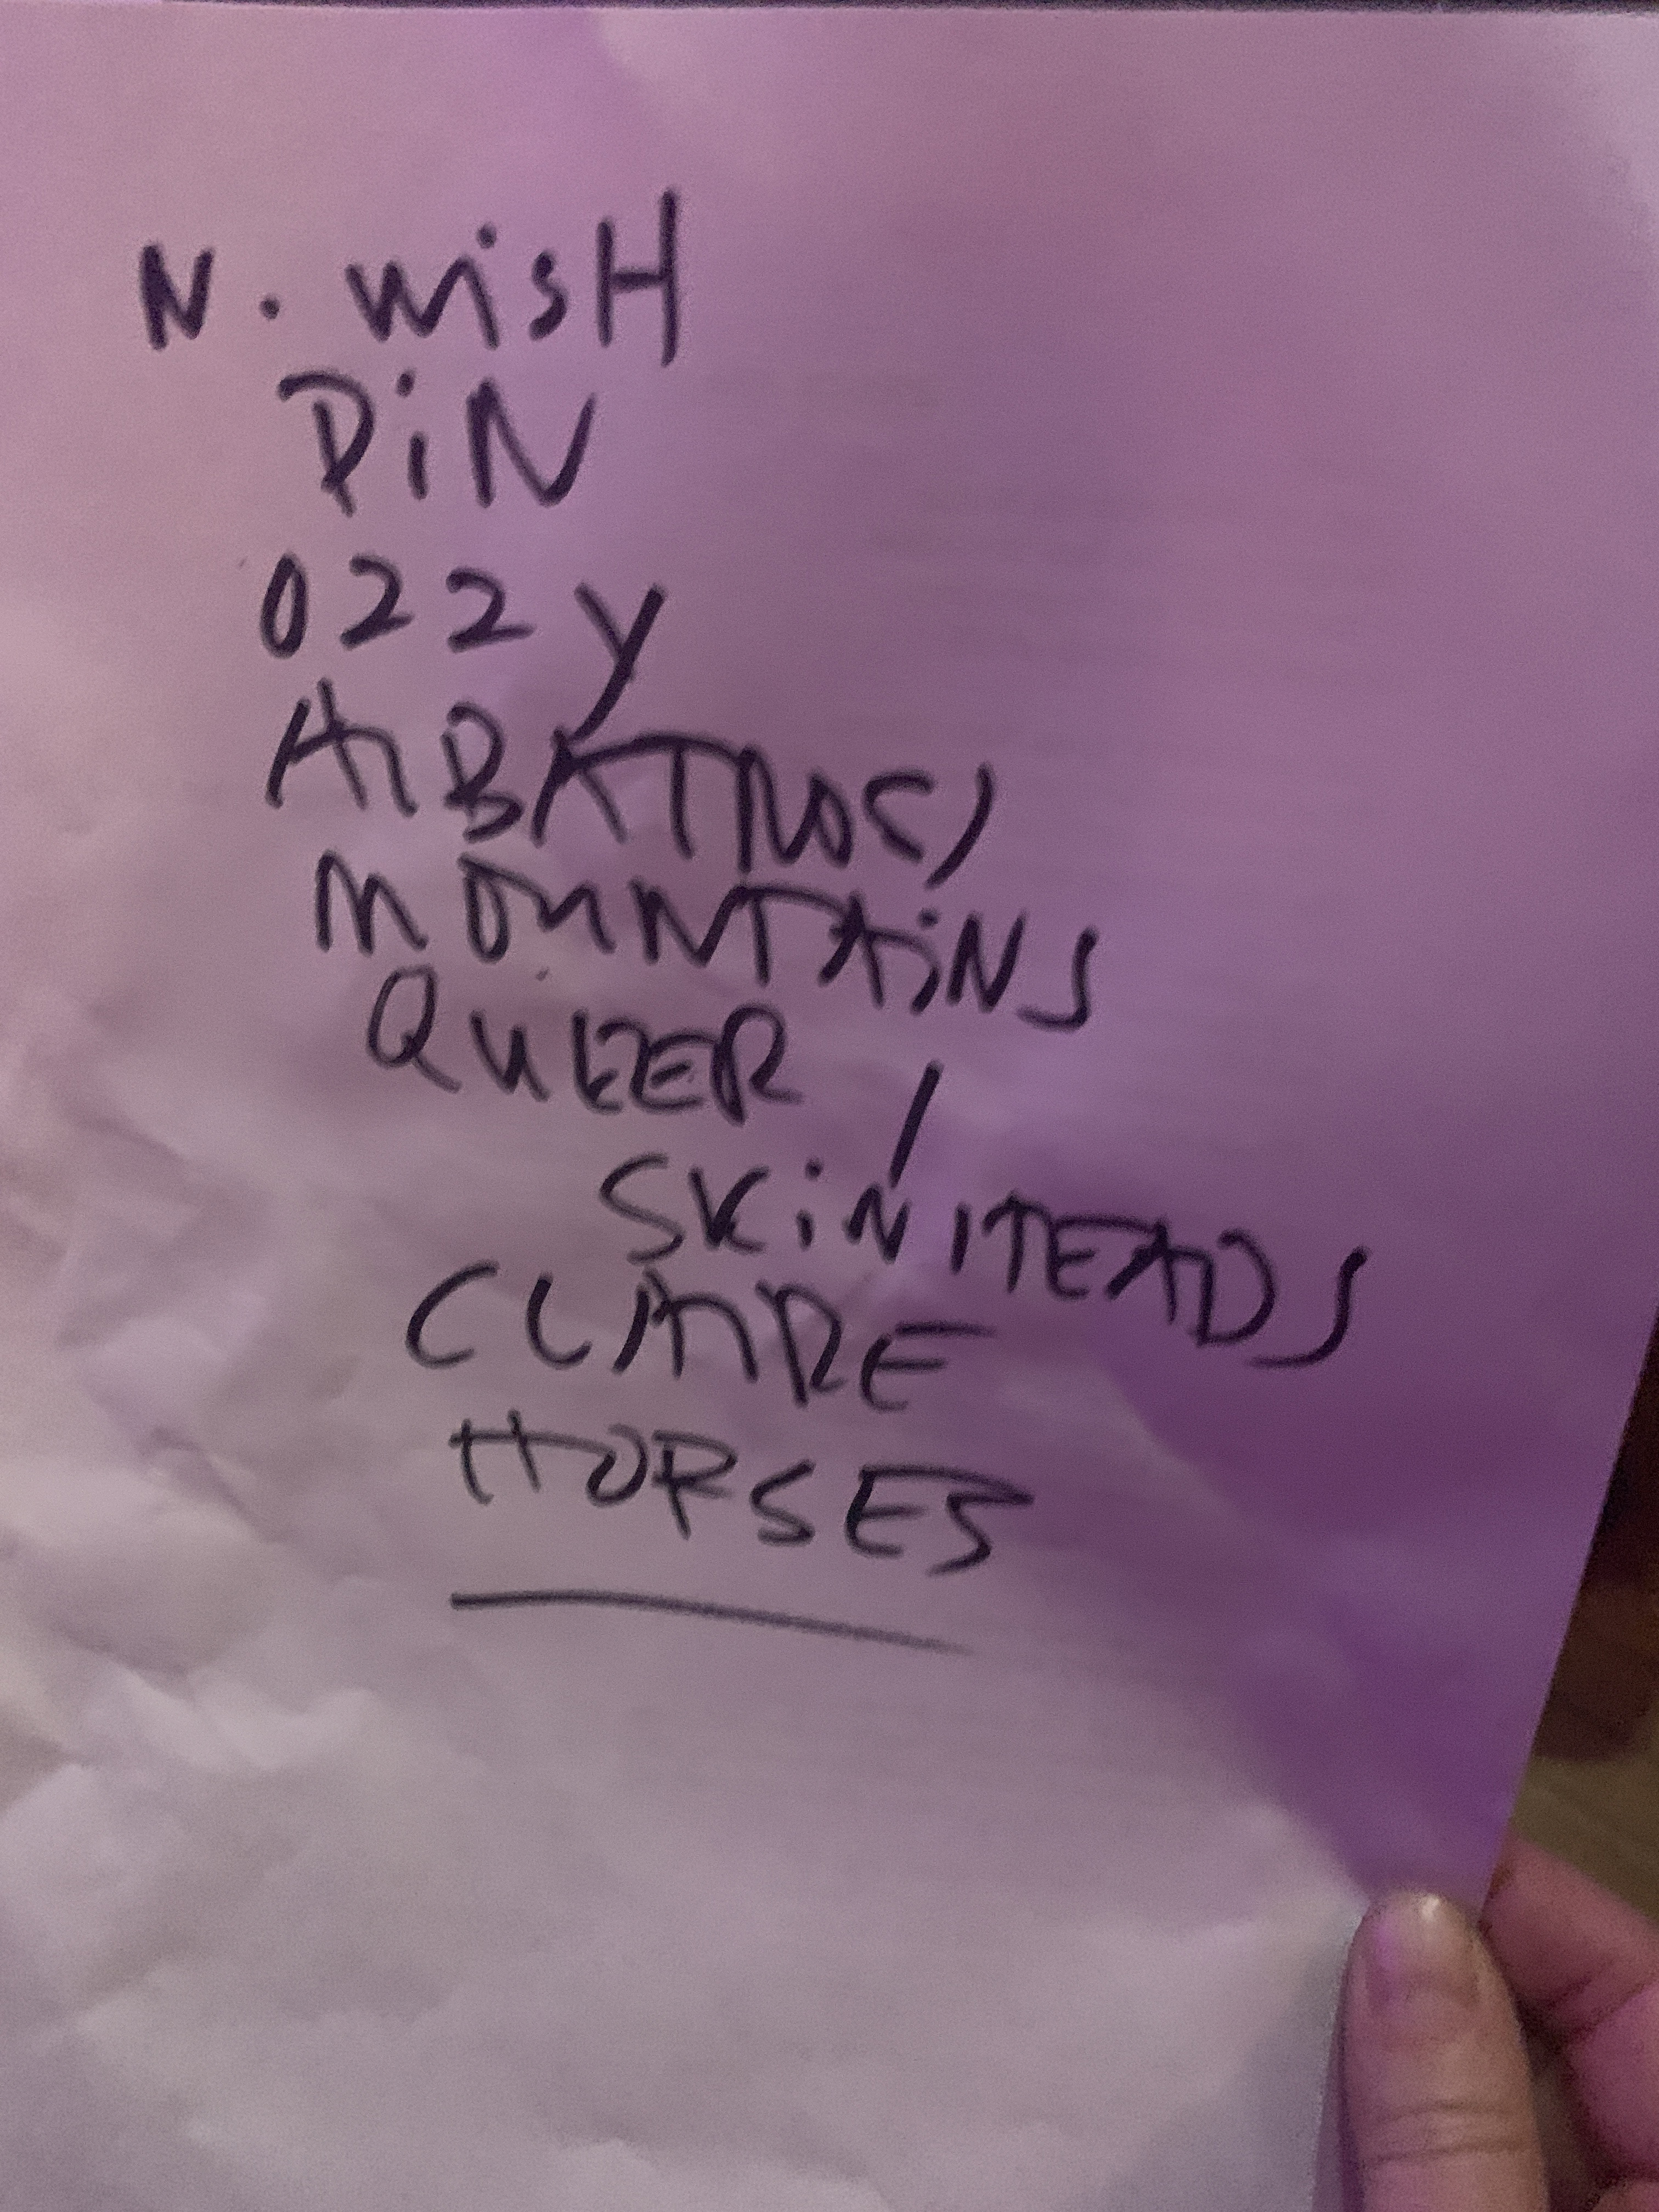 N. WISH
PIN
OZZY
ALBATROSS
MOUNTAINS
QUEER /
SKINHEADS
CLAIRE
HORSES